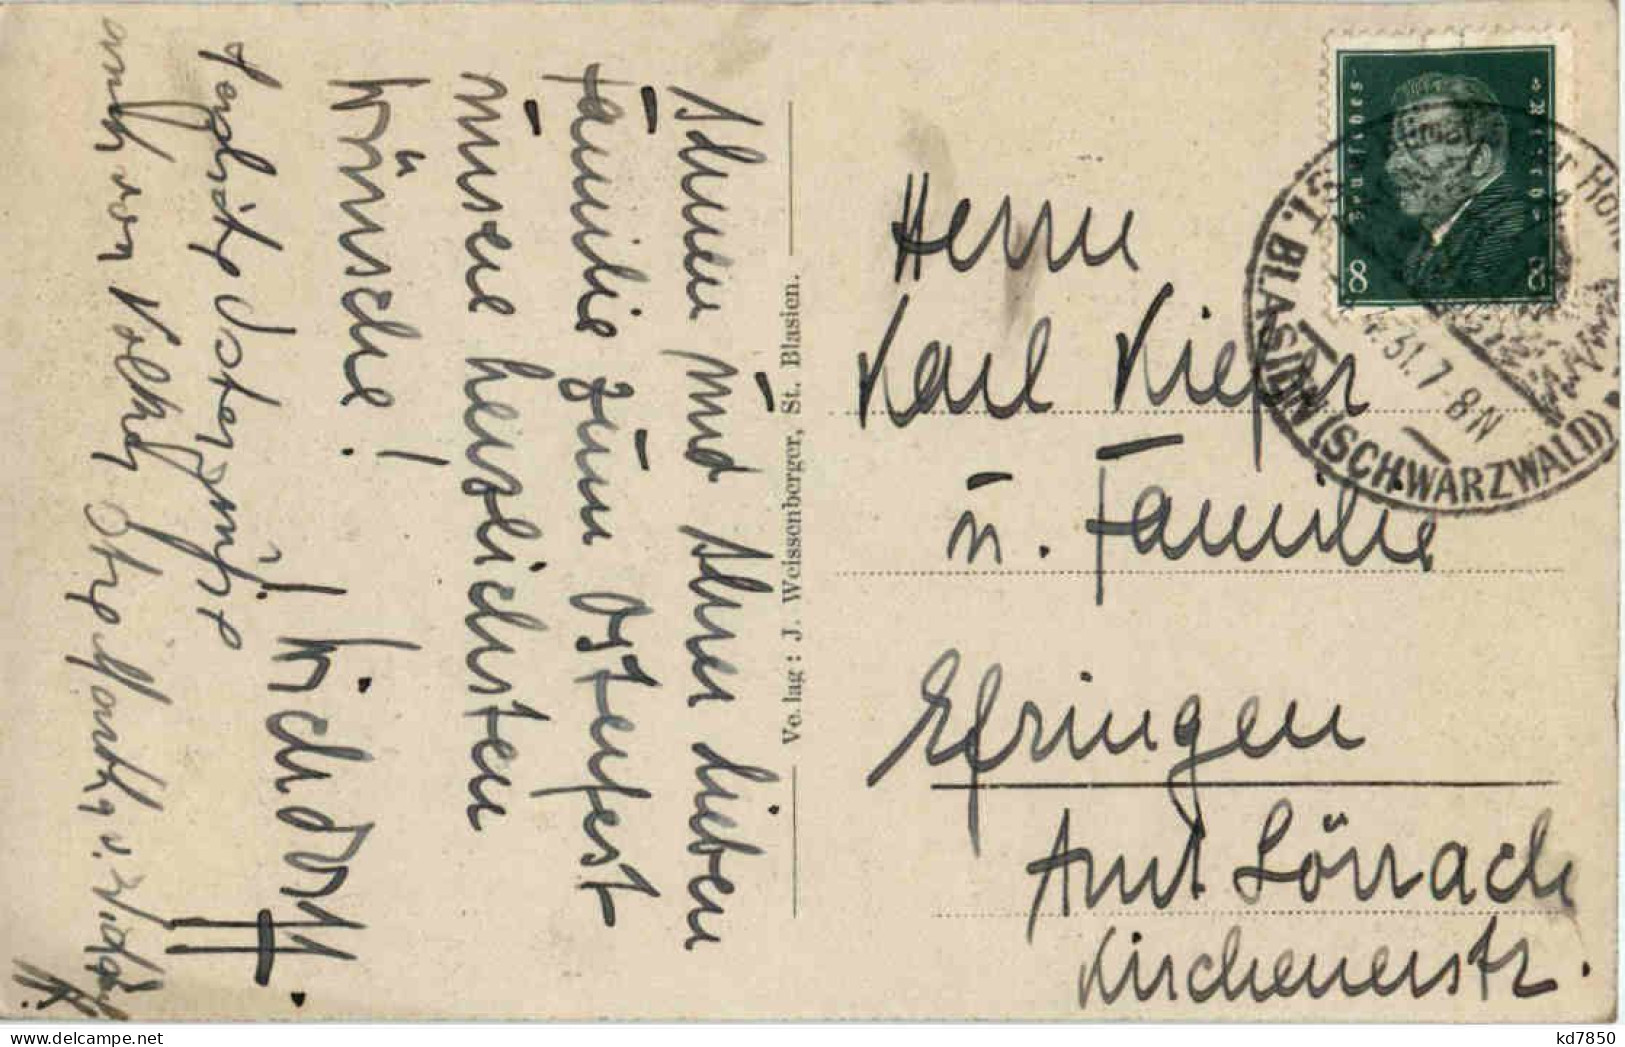 Ihnen und Ihrer lieben
Familie zum Osterfest
unsere herzlichsten
Wünsche!
Wichdorff
Herzliche Ostergrüße
auch von
Verlag: J. J. Weissenberger, St. Blasien.
Herrn
Karl Kiefer
u. Familie
Efringen
Amt Lörrach
Kirchenerstr.
Deutsches Reich
8 8
ST. BLASIEN (SCHWARZWALD)
31.7-8N
kd7850